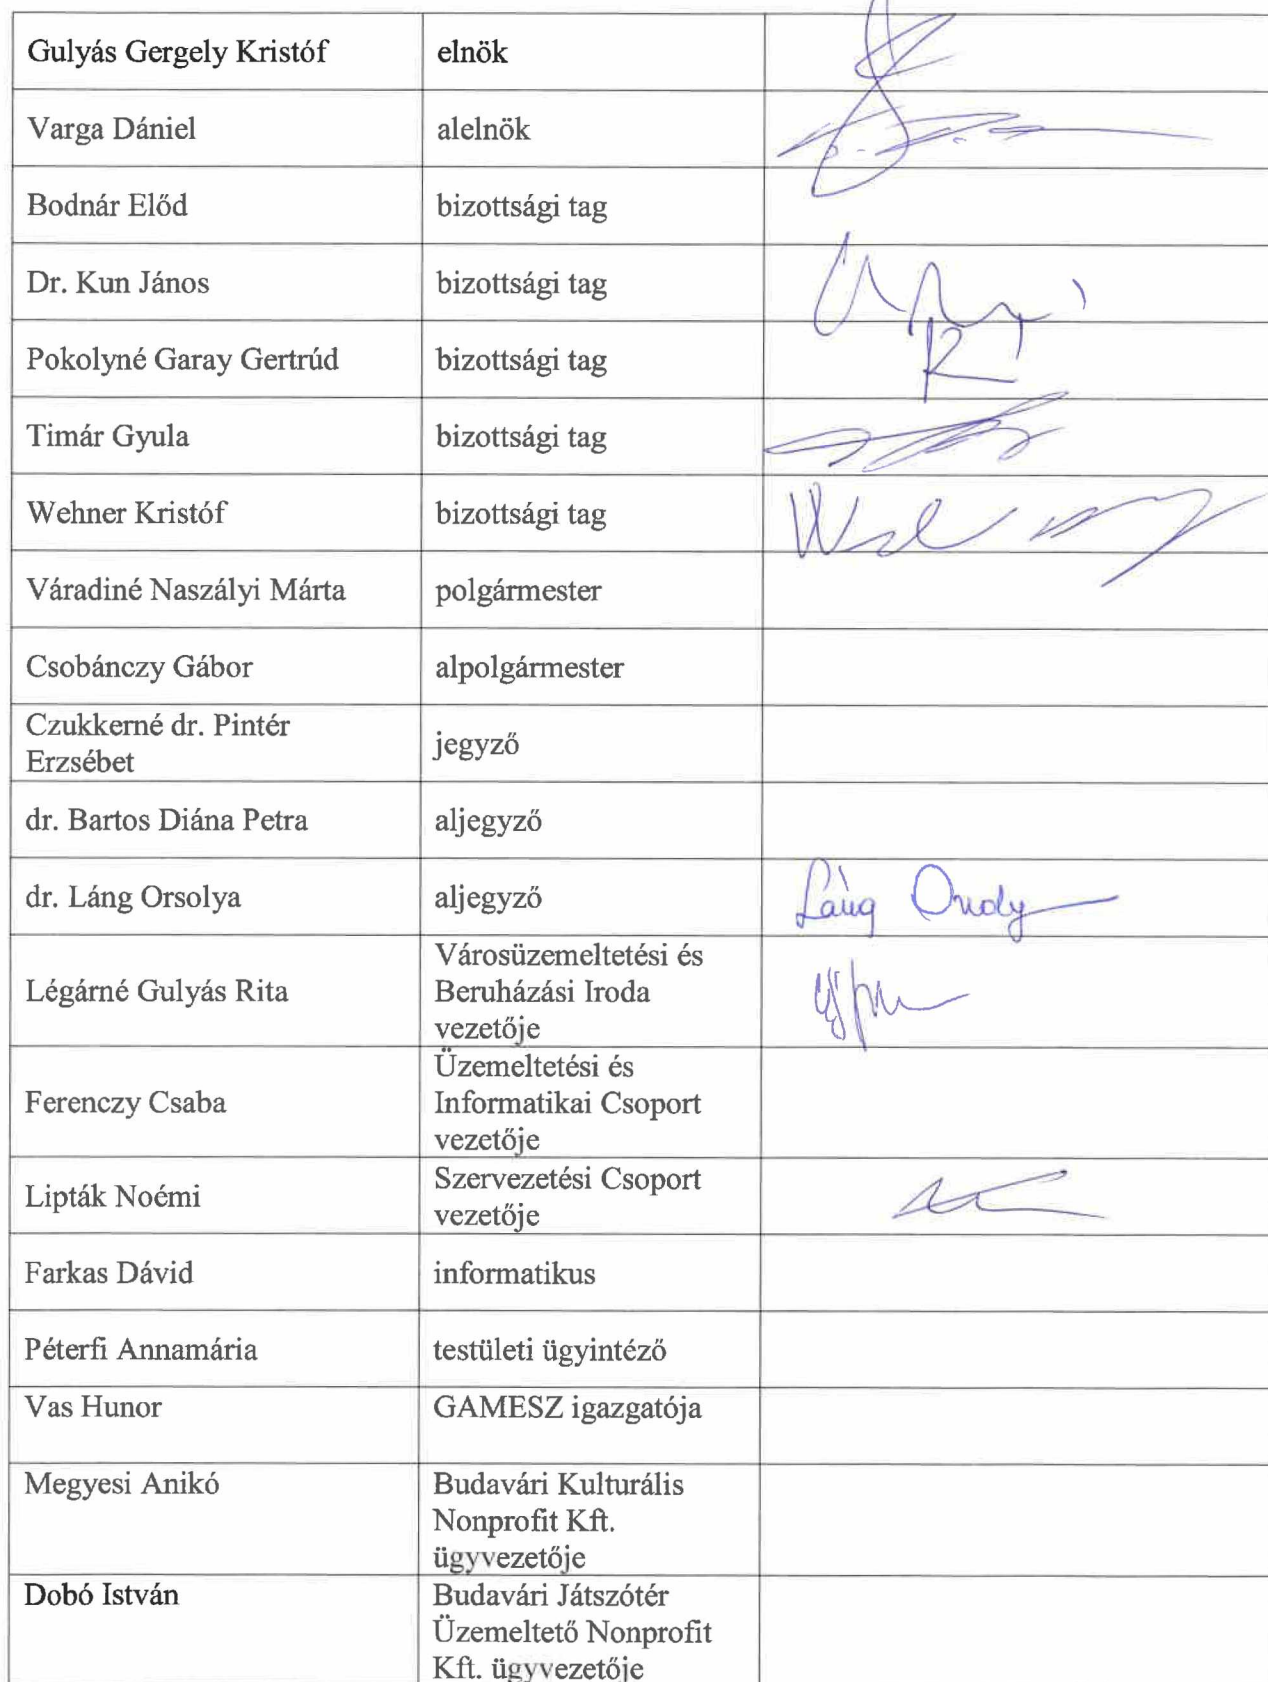 Gulyás Gergely Kristóf elnök
Varga Dániel alelnök
Bodnár Előd bizottsági tag
Dr. Kun János bizottsági tag
Pokolyné Garay Gertrúd bizottsági tag
Timár Gyula bizottsági tag
Wehner Kristóf bizottsági tag
Váradiné Naszályi Márta polgármester
Csobánczy Gábor alpolgármester
Czukkerné dr. Pintér
Erzsébet
jegyző
dr. Bartos Diána Petra aljegyző
dr. Láng Orsolya aljegyző Láng
Légárné Gulyás Rita
Városüzemeltetési és
Beruházási Iroda
vezetője
Ferenczy Csaba
Üzemeltetési és
Informatikai Csoport
vezetője
Lipták Noémi
Szervezetési Csoport
vezetője
Farkas Dávid informatikus
Péterfi Annamária testületi ügyintéző
Vas Hunor GAMESZ igazgatója
Megyesi Anikó
Budavári Kulturális
Nonprofit Kft.
ügyvezetője
Dobó István
Budavári Játszótér
Üzemeltető Nonprofit
Kft. ügyvezetője